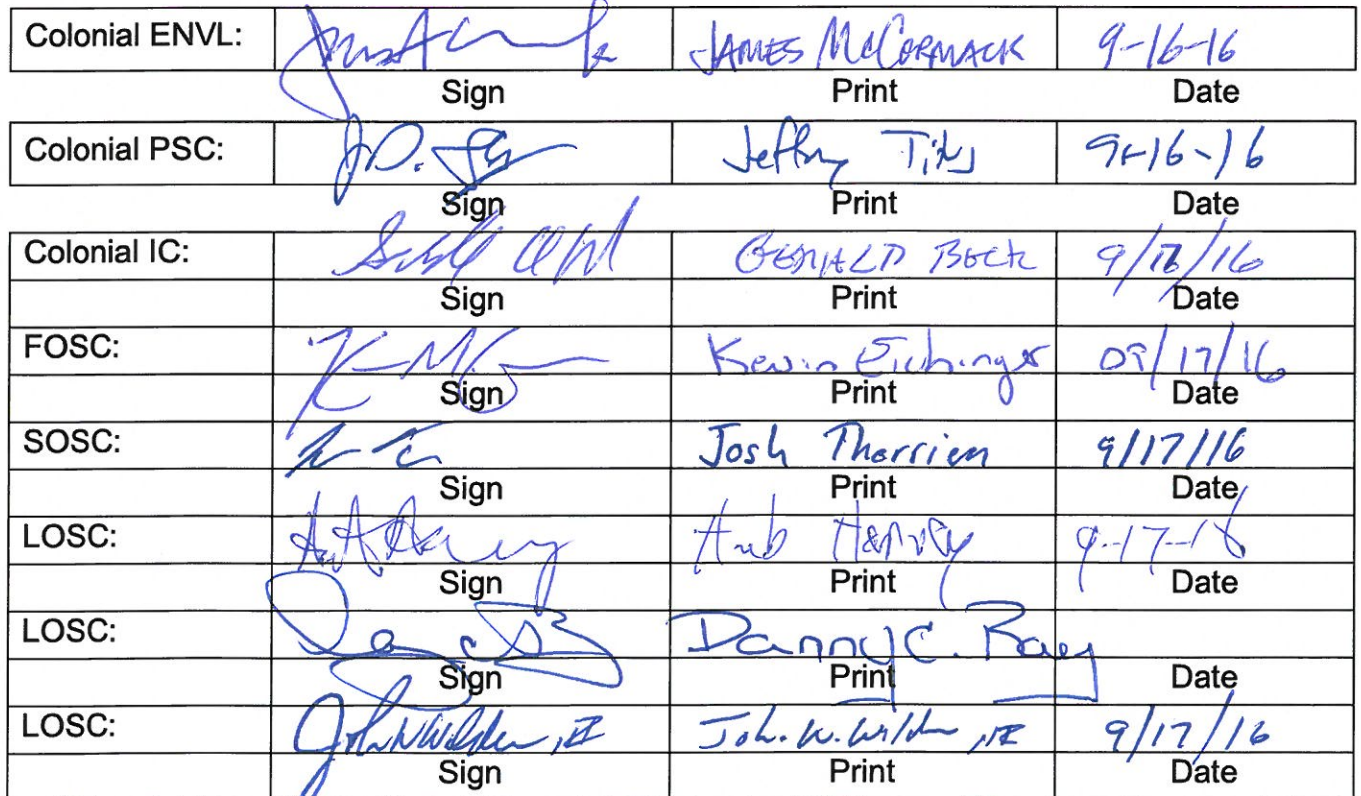 Colonial ENVL: JAMES McCORMACK 9-16-16
Sign Print Date
Colonial PSC: Jeffrey 9-16-16
Sign Print Date
Colonial IC: GERALD BECK 9/16/16
Sign Print Date
FOSC: Kevin Eichinger 09/17/16
Sign Print Date
SOSC: Josh Therrien 9/17/16
Sign Print Date
LOSC: Harvey 9-17-16
Sign Print Date
LOSC: Danny C. Ray
Sign Print Date
LOSC: John W. 9/17/16
Sign Print Date